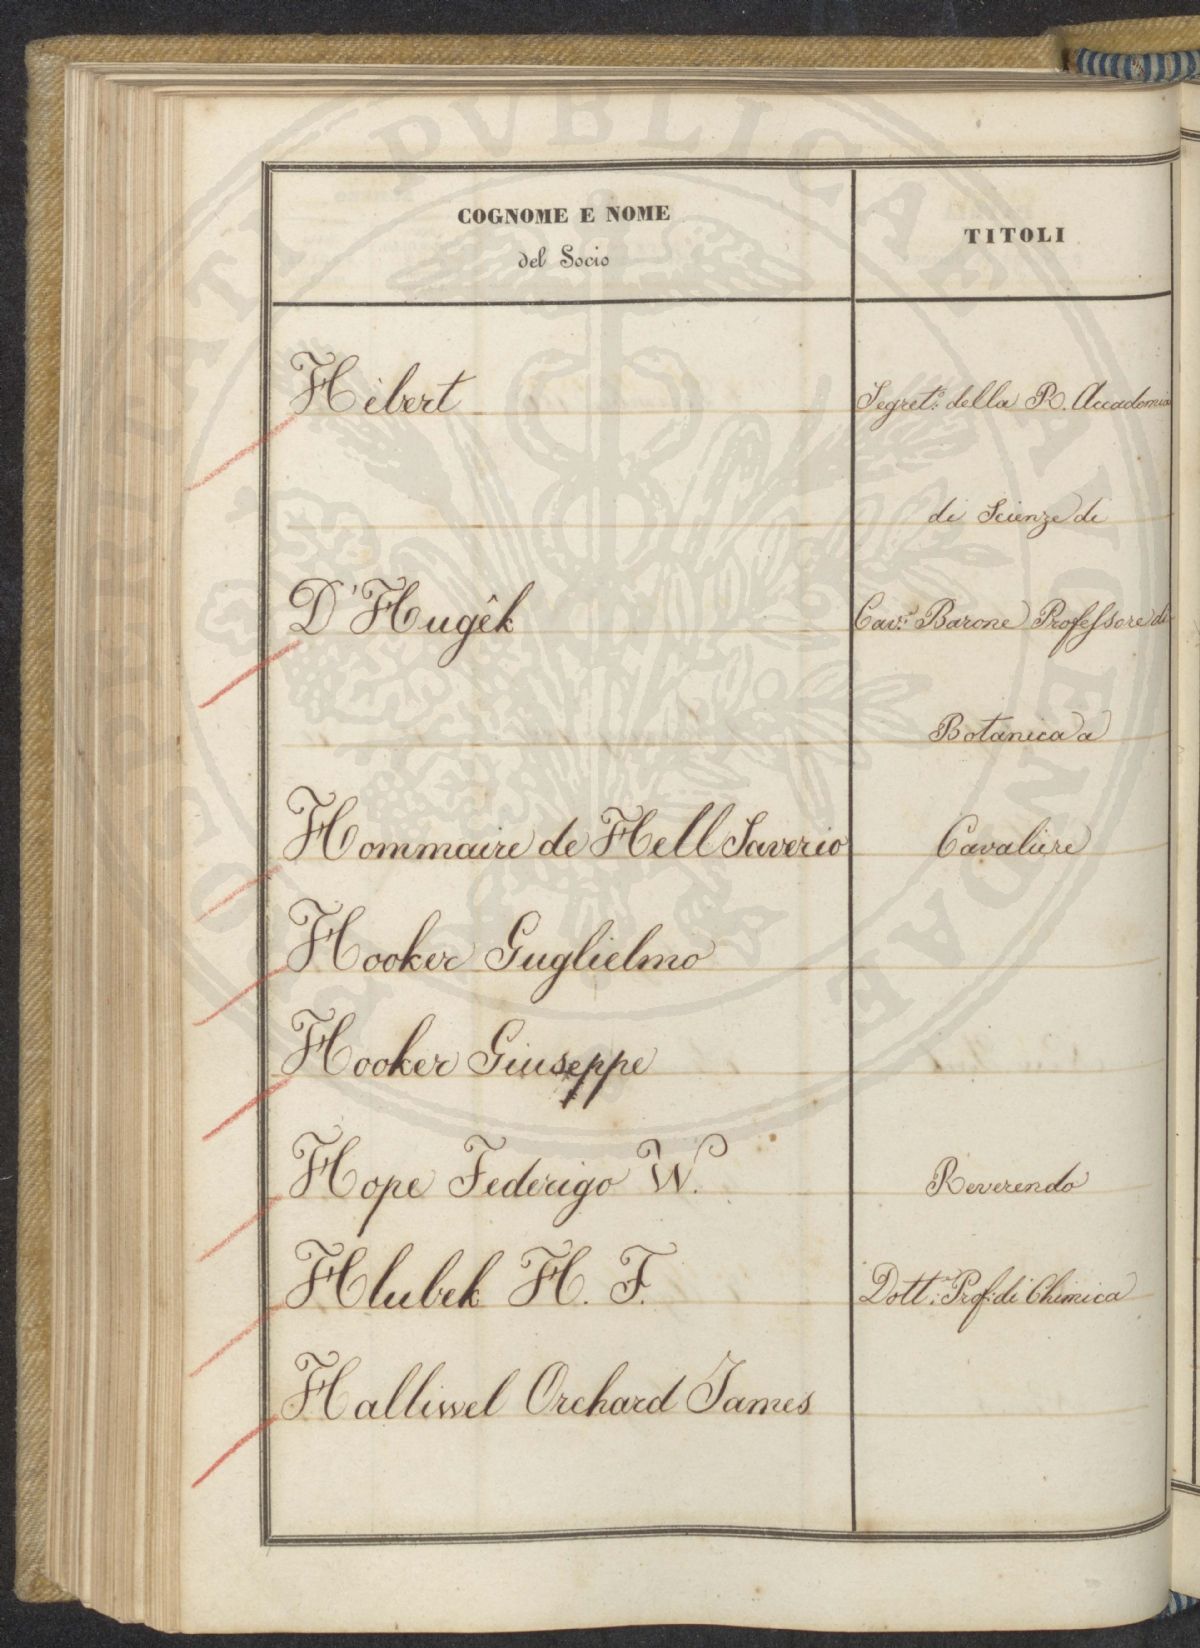 COGNOME E NOME
del Socio
TITOLI
Hébert
Segret.º della R. Accademia
di Scienze di
D'Hugêk
Cav.re Barone Professore di
Botanica a
Hommaire de Hell Saverio
Cavaliere
Hooker Guglielmo
Hooker Giuseppe
Hope Federigo W.
Reverendo
Hlubek H. F.
Dott.re Prof: di Chimica
Halliwel Orchard James
PROSPERITATI PVBLICAE AVGENDAE